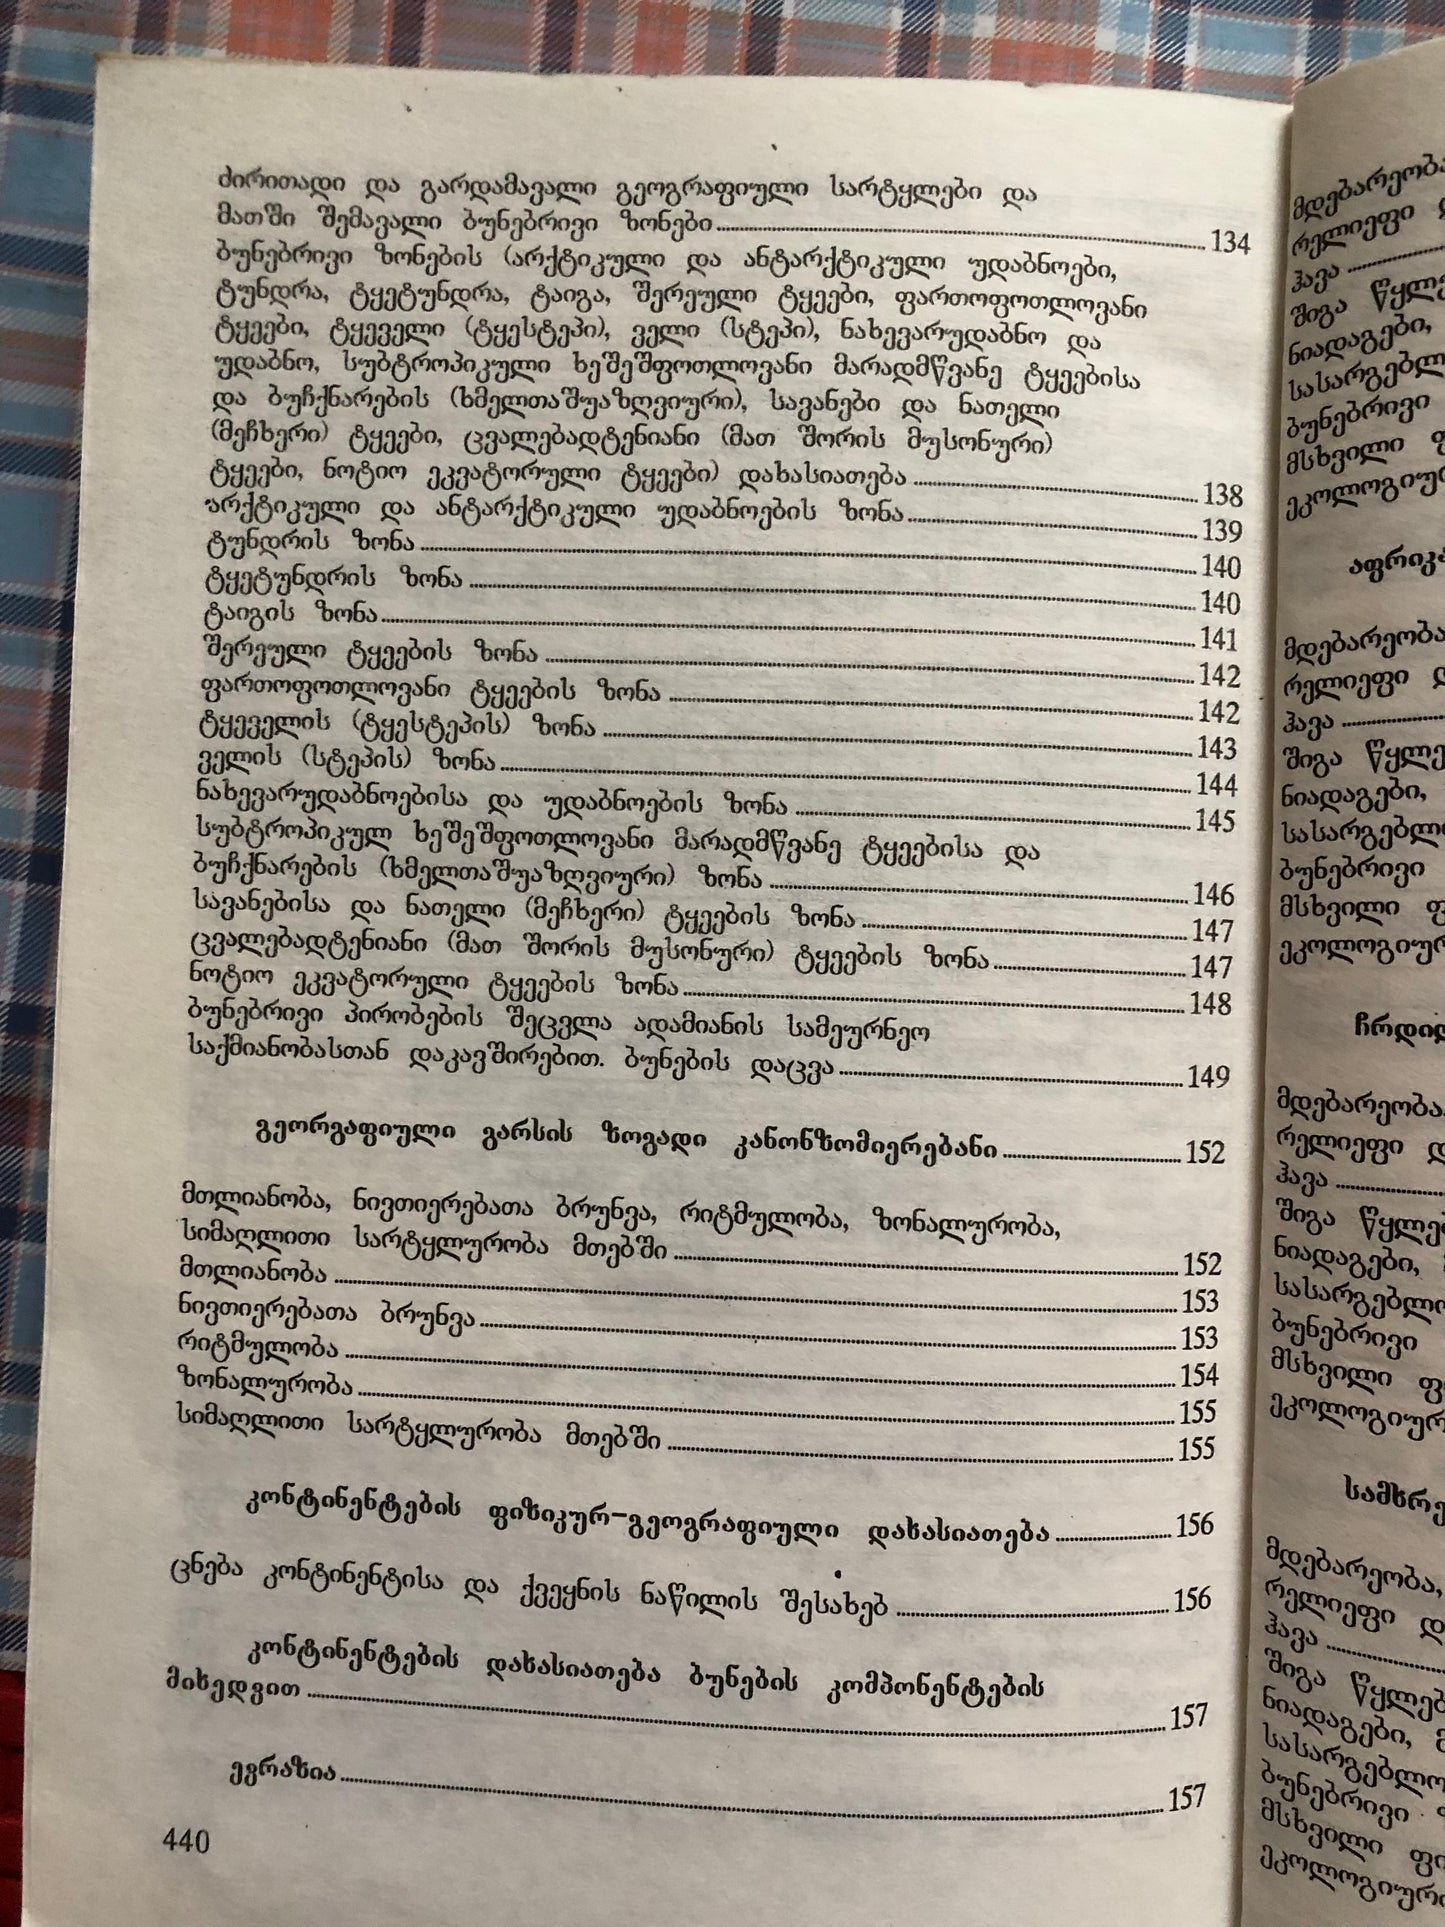 ძირითადი და გარდამავალი გეოგრაფიული სარტყლები და
მათში შემავალი ბუნებრივი ზონები 134
ბუნებრივი ზონების (არქტიკული და ანტარქტიკული უდაბნოები,
ტუნდრა, ტყეტუნდრა, ტაიგა, შერეული ტყეები, ფართოფოთლოვანი
ტყეები, ტყეველი (ტყესტეპი), ველი (სტეპი), ნახევარუდაბნო და
უდაბნო, სუბტროპიკული ხეშეშფოთლოვანი მარადმწვანე ტყეებისა
და ბუჩქნარების (ხმელთაშუაზღვიური), სავანები და ნათელი
(მეჩხერი) ტყეები, ცვალებადტენიანი (მათ შორის მუსონური)
ტყეები, ნოტიო ეკვატორული ტყეები) დახასიათება 138
არქტიკული და ანტარქტიკული უდაბნოების ზონა 139
ტუნდრის ზონა 140
ტყეტუნდრის ზონა 140
ტაიგის ზონა 141
შერეული ტყეების ზონა 142
ფართოფოთლოვანი ტყეების ზონა 142
ტყეველის (ტყესტეპის) ზონა 143
ველის (სტეპის) ზონა 144
ნახევარუდაბნოებისა და უდაბნოების ზონა 145
სუბტროპიკულ ხეშეშფოთლოვანი მარადმწვანე ტყეებისა და
ბუჩქნარების (ხმელთაშუაზღვიური) ზონა 146
სავანებისა და ნათელი (მეჩხერი) ტყეების ზონა 147
ცვალებადტენიანი (მათ შორის მუსონური) ტყეების ზონა 147
ნოტიო ეკვატორული ტყეების ზონა 148
ბუნებრივი პირობების შეცვლა ადამიანის სამეურნეო
საქმიანობასთან დაკავშირებით. ბუნების დაცვა 149
გეორგაფიული გარსის ზოგადი კანონზომიერებანი 152
მთლიანობა, ნივთიერებათა ბრუნვა, რიტმულობა, ზონალურობა,
სიმაღლითი სარტყლურობა მთებში 152
მთლიანობა 153
ნივთიერებათა ბრუნვა 153
რიტმულობა 154
ზონალურობა 155
სიმაღლითი სარტყლურობა მთებში 155
კონტინენტების ფიზიკურ-გეოგრაფიული დახასიათება 156
ცნება კონტინენტისა და ქვეყნის ნაწილის შესახებ 156
კონტინენტების დახასიათება ბუნების კომპონენტების
მიხედვით 157
ევრაზია 157
440
მდებარეობა
რელიეფი
ჰავა
შიგა
ნიადაგები,
ბუნებრივი
მსხვილი
მდებარეობა
რელიეფი
ჰავა
შიგა
ნიადაგები,
ბუნებრივი
მსხვილი
მდებარეობა
რელიეფი
ჰავა
შიგა
ნიადაგები,
ბუნებრივი
მსხვილი
მდებარეობა,
რელიეფი
ჰავა
შიგა
ნიადაგები,
ბუნებრივი
მსხვილი